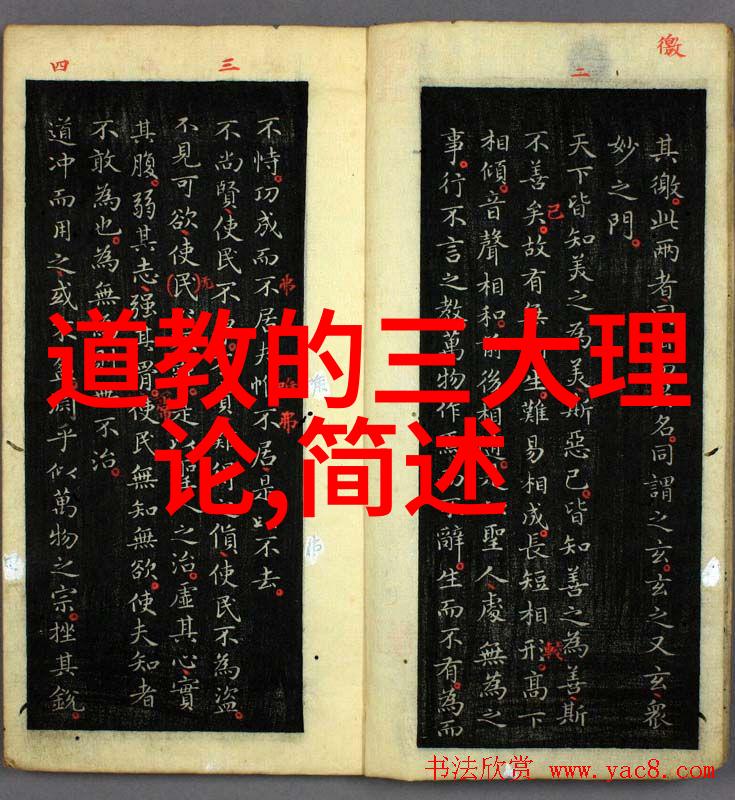 徼
二
其徼。此兩者同名。同謂之玄。玄之又玄。眾
妙之門。
天下皆知美之為美。斯惡已。皆知善之為善。斯
不善矣。故有生。難易相成。長短相形。高下
相傾。音聲相和。前後相聖人處無為之
事。行不言之教。萬物作而不辭。生而不有。為而
三
四
不恃。功成而不居。夫惟不居。是以不去。
不尚賢。使民不使民不為盜。
不見可欲。使民之治。虛其心。實
其腹。弱其志。强其骨。使民無知無欲。使夫知者
不敢為也。為無不治。
道冲而用之。或不盈。淵乎似萬物之宗。挫其銳。
道教的三大理
论,简述
书法欣赏 www.yac8.com